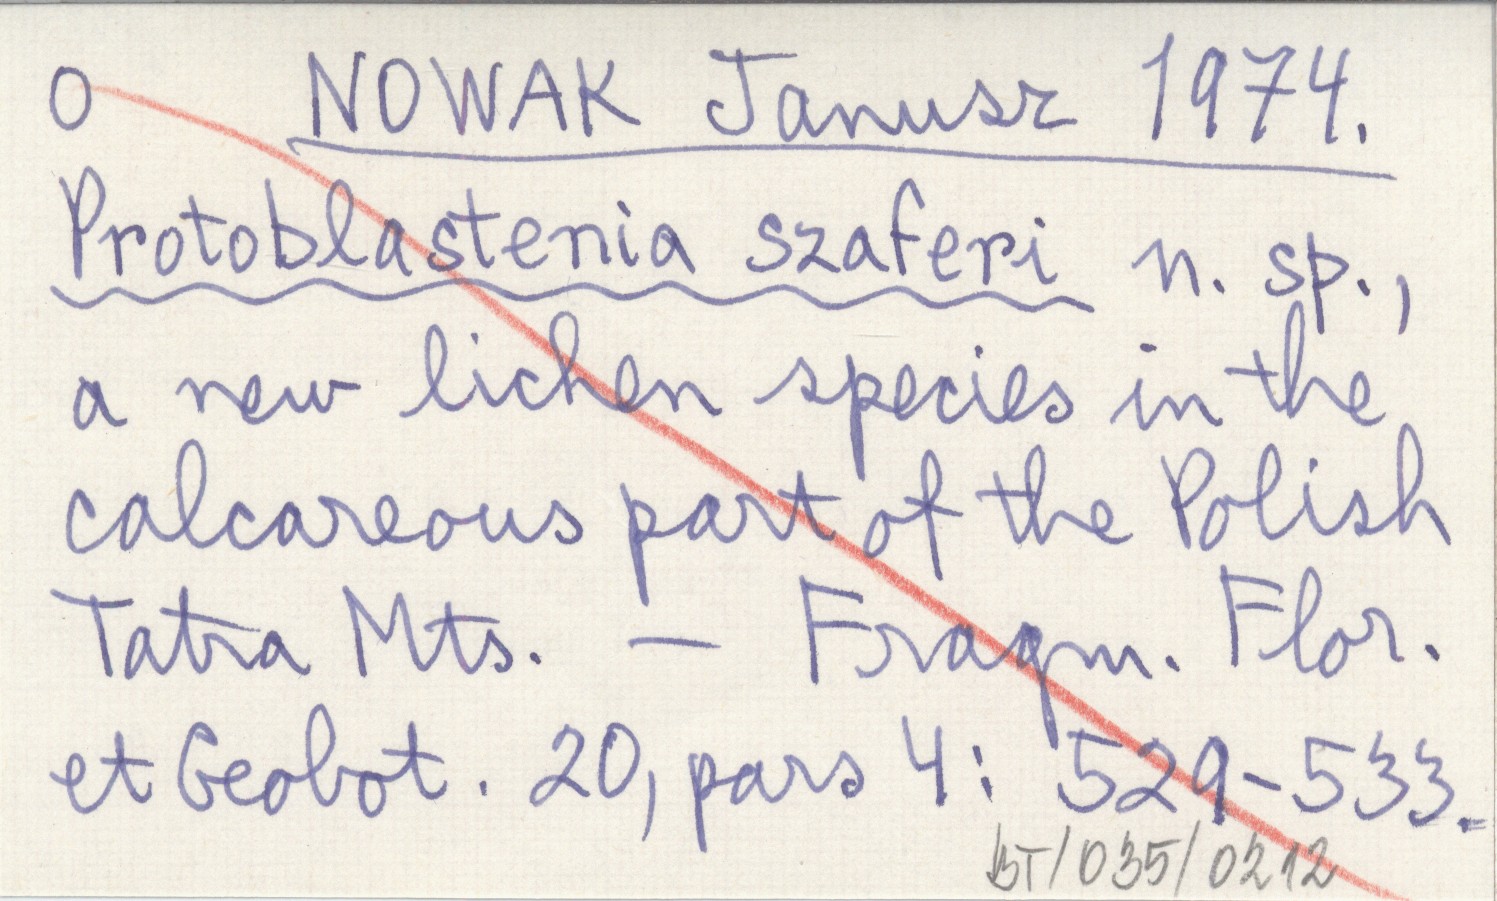 O NOWAK Janusz 1974.
Protoblastenia szaferi n. sp.,
a new lichen species in the
calcareous part of the Polish
Tatra Mts. — Fragm. Flor.
et Geobot. 20, pars 4: 529-533.
BT/035/0212